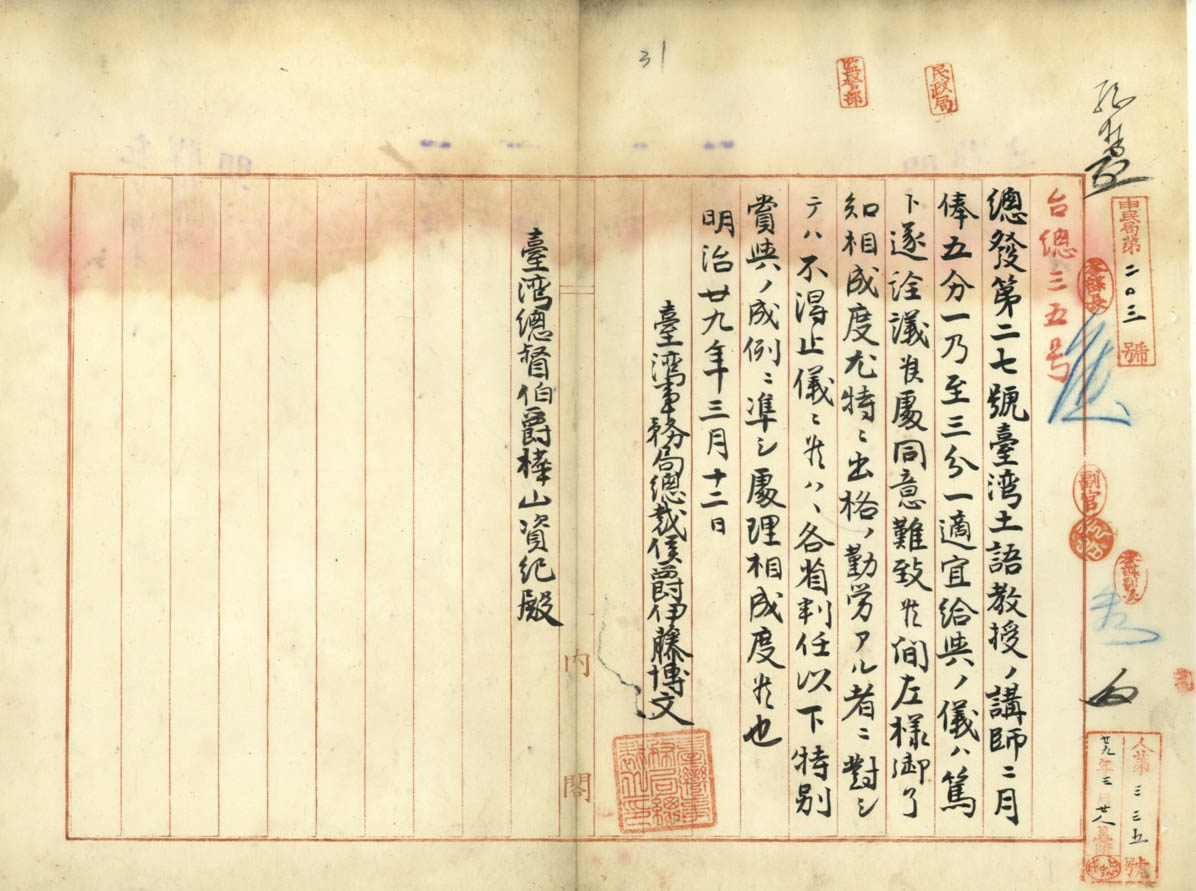 31
監督部
民政局
申民局第二〇三號
台總三五号
總發第二七號臺湾土語教授ノ講師ニ月
俸五分一乃至三分一適宜給與ノ儀ハ篤
ト遂詮議候處同意難致候間左様御了
知相成度尤特ニ出格ノ勤労アル者ニ對シ
テハ不得止儀ニ候ハヽ各省判任以下特別
賞與ノ成例ニ準シ處理相成度候也
明治廿九年三月十二日
臺湾事務局總裁侯爵伊藤博文
臺湾總督伯爵樺山資紀殿
内閣
副官
人第三三五號